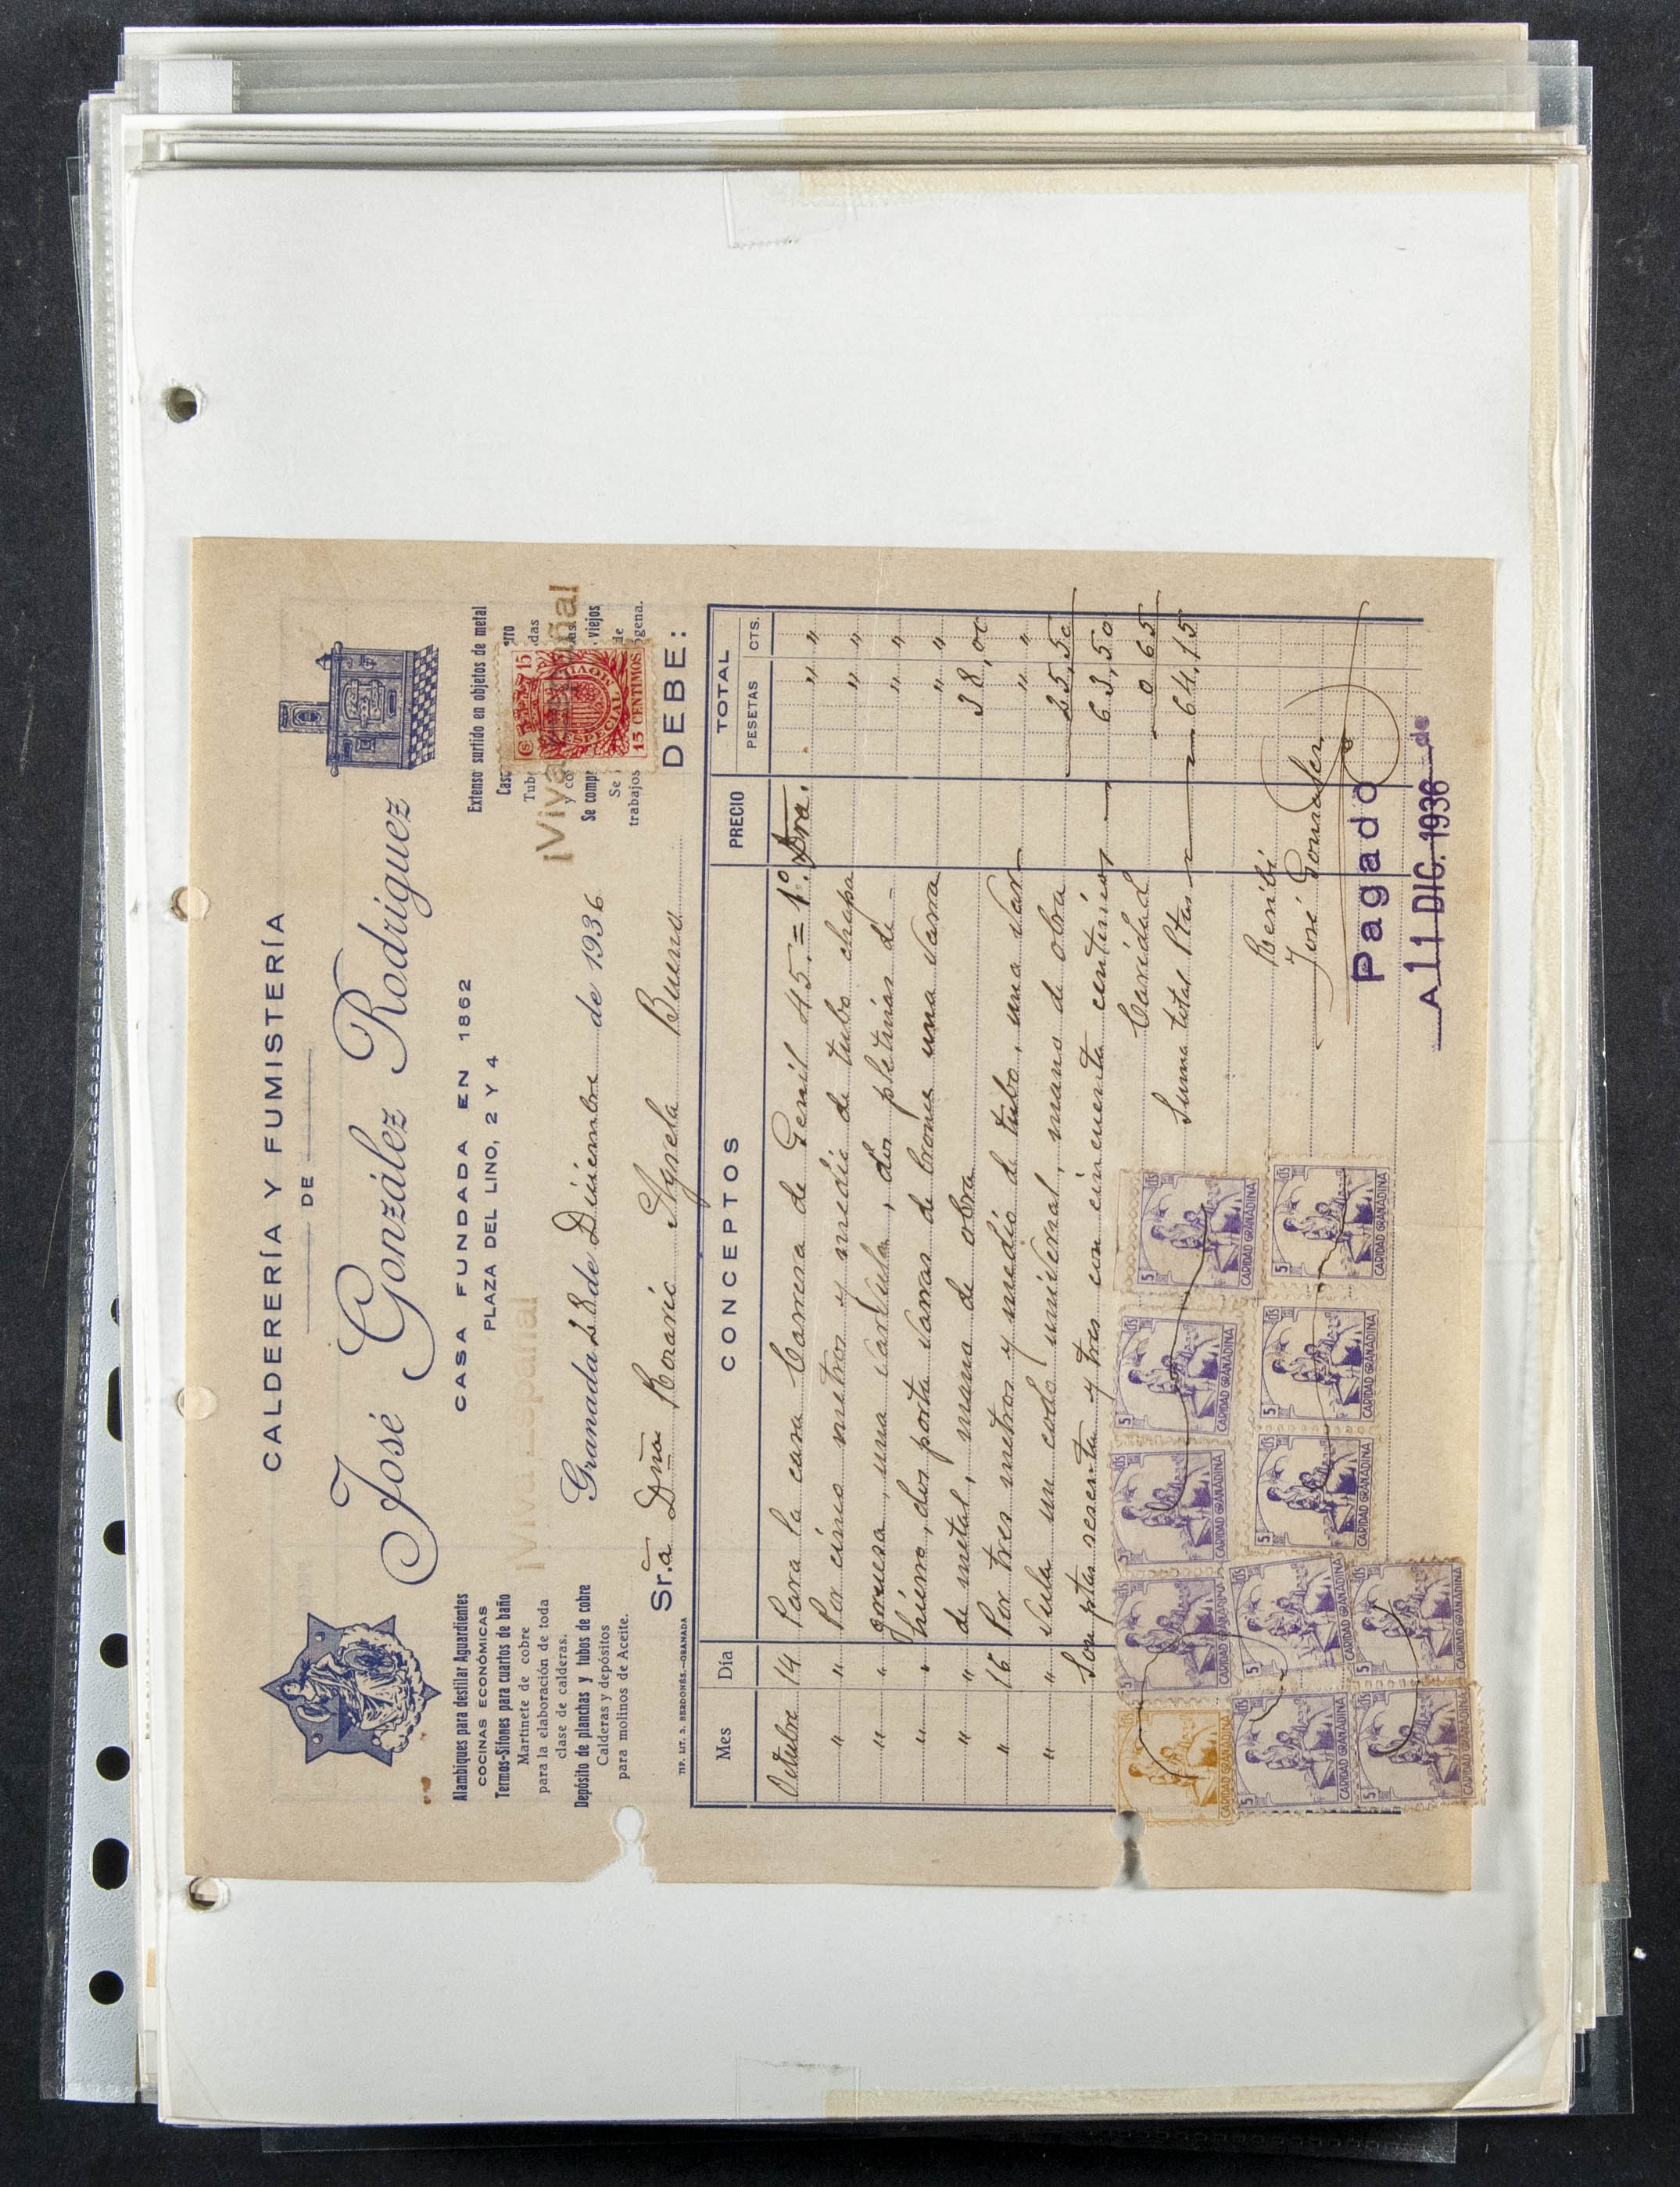 CALDERERÍA Y FUMISTERÍA
DE
José González Rodríguez
CASA FUNDADA EN 1862
PLAZA DEL LINO, 2 Y 4
Alambiques para destilar Aguardientes
COCINAS ECONÓMICAS
Termos-Sifones para cuartos de baño
Martinete de cobre
para la elaboración de toda
clase de calderas.
Depósito de planchas y tubos de cobre
Calderas y depósitos
para molinos de Aceite.
TIP. LIT. S. BERDONÉS.—GRANADA
Extenso surtido en objetos de metal
Tub
y co
Se comp viejos
Se de
trabajos ógena.
15
ESPECIAL MOVIL
15 CENTIMOS
¡Viva España!
¡Viva España!
Granada 28 de Diciembre de 1936
Sr.a Dña Rosario Bueno
DEBE:
Mes Día CONCEPTOS PRECIO TOTAL
PESETAS CTS.
Octubre 14 Para la casa Carrera de Genil 45.= 1º. Dra. " "
" " Por cinco metros y medio de tubo chapa " "
" " gruesa, una valvula, dos pletinas de - " "
" " hierro, dos porta varras de bronce una varra " "
" " de metal, mano de obra 38,00
" 16 Por tres metros y medio de tubo, una val " "
" " vula un codo universal, mano de obra 25,50
Son ptas sesenta y tres con cincuenta centimos 63,50
Caridad 0 65
Suma total Ptas 64,15
Recibí
José Gonzalez
Pagado
A 11 DIC. 1936 de
5 CTS
CARIDAD GRANADINA
5 CTS
CARIDAD GRANADINA
5 CTS
CARIDAD GRANADINA
5 CTS
CARIDAD GRANADINA
CTS
CARIDAD GRANADINA
5 CTS
CARIDAD GRANADINA
5 CTS
CARIDAD GRANADINA
5 CTS
CARIDAD GRANADINA
5 CTS
CARIDAD GRANADINA
5 CTS
CARIDAD GRANADINA
5 CTS
CARIDAD GRANADINA
5 CTS
CARIDAD GRANADINA